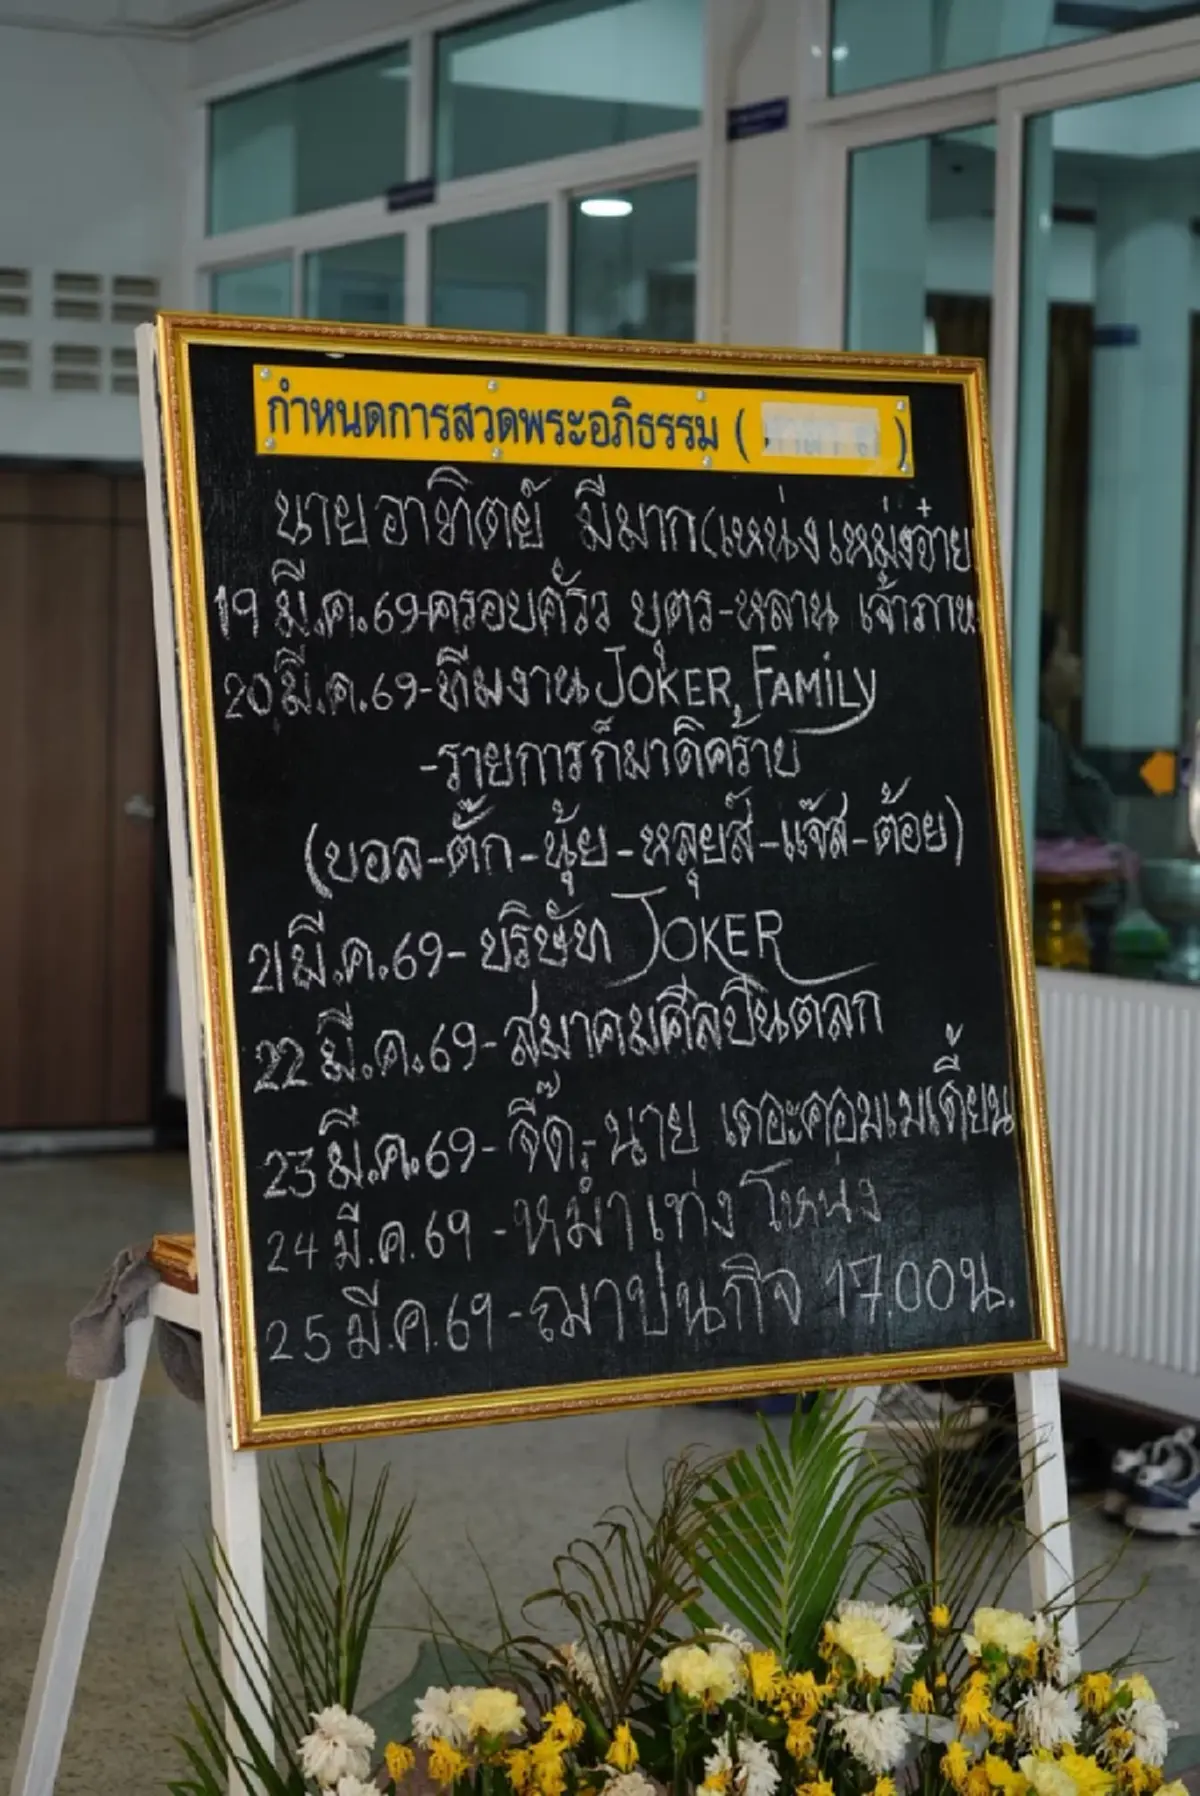 กำหนดการสวดพระอภิธรรม ( )
นายอาทิตย์ มีมาก(เหน่งเหม่งจ๋าย
19 มี.ค.69-ครอบครัว บุตร-หลาน เจ้าภาพ
20 มี.ค.69-ทีมงาน JOKER FAMILY
-รายการก็มาดิคร้าบ
(บอล-ตั๊ก-นุ้ย-หลุยส์-แจ๊ส-ต้อย)
21 มี.ค.69- บริษัท JOKER
22 มี.ค.69-สมาคมศิลปินตลก
23 มี.ค.69-จี๊ด,-นาย เดอะคอมเมเดี้ยน
24 มี.ค.69 -หม่ำ เท่ง โหน่ง
25 มี.ค.69 -ฌาปนกิจ 17.00น.